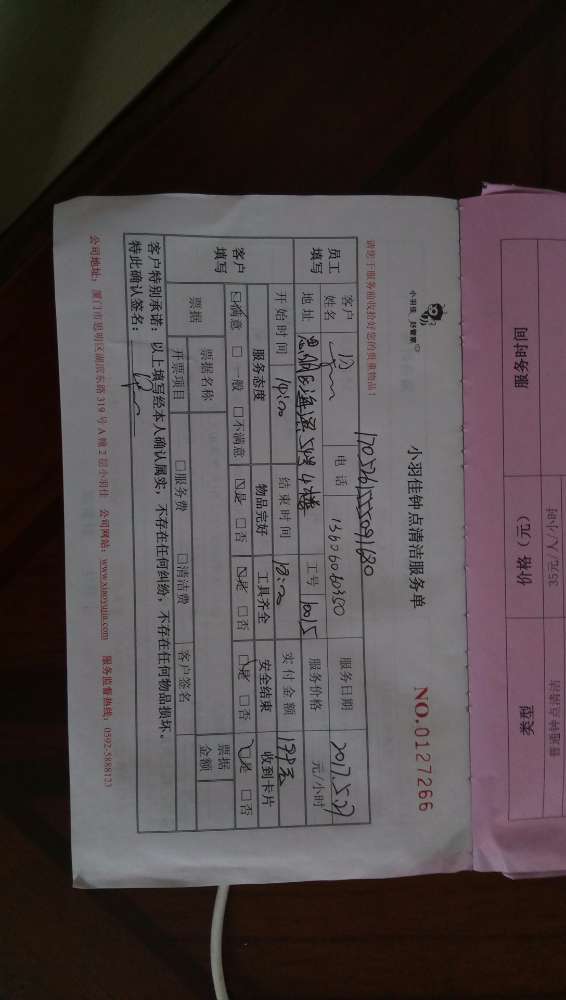 小羽佳 好管家
小羽佳钟点清洁服务单
NO.0127266
请您于服务前收拾好您的贵重物品!
员工填写 客户姓名 电话 13606060350 服务日期
地址 工号 10015 服务价格 元/小时
开始时间 14:00 结束时间 18:00 实付金额
客户填写 服务态度 物品完好 工具齐全 安全结束 收到卡片
☑满意 □一般 □不满意 ☑是 □否 ☑是 □否 ☑是 □否 ☑是 □否
票据 票据名称 票据金额
开票项目 □服务费 □清洁费 客户签名
客户特别承诺:以上填写经本人确认属实,不存在任何纠纷,不存在任何物品损坏。
特此确认签名:
公司地址:厦门市思明区湖滨东路319号A幢2层小羽佳 公司网站:www.xiaoyujia.com 服务监督热线:0592-5888123
服务时间 价格(元) 类型
35元/人/小时